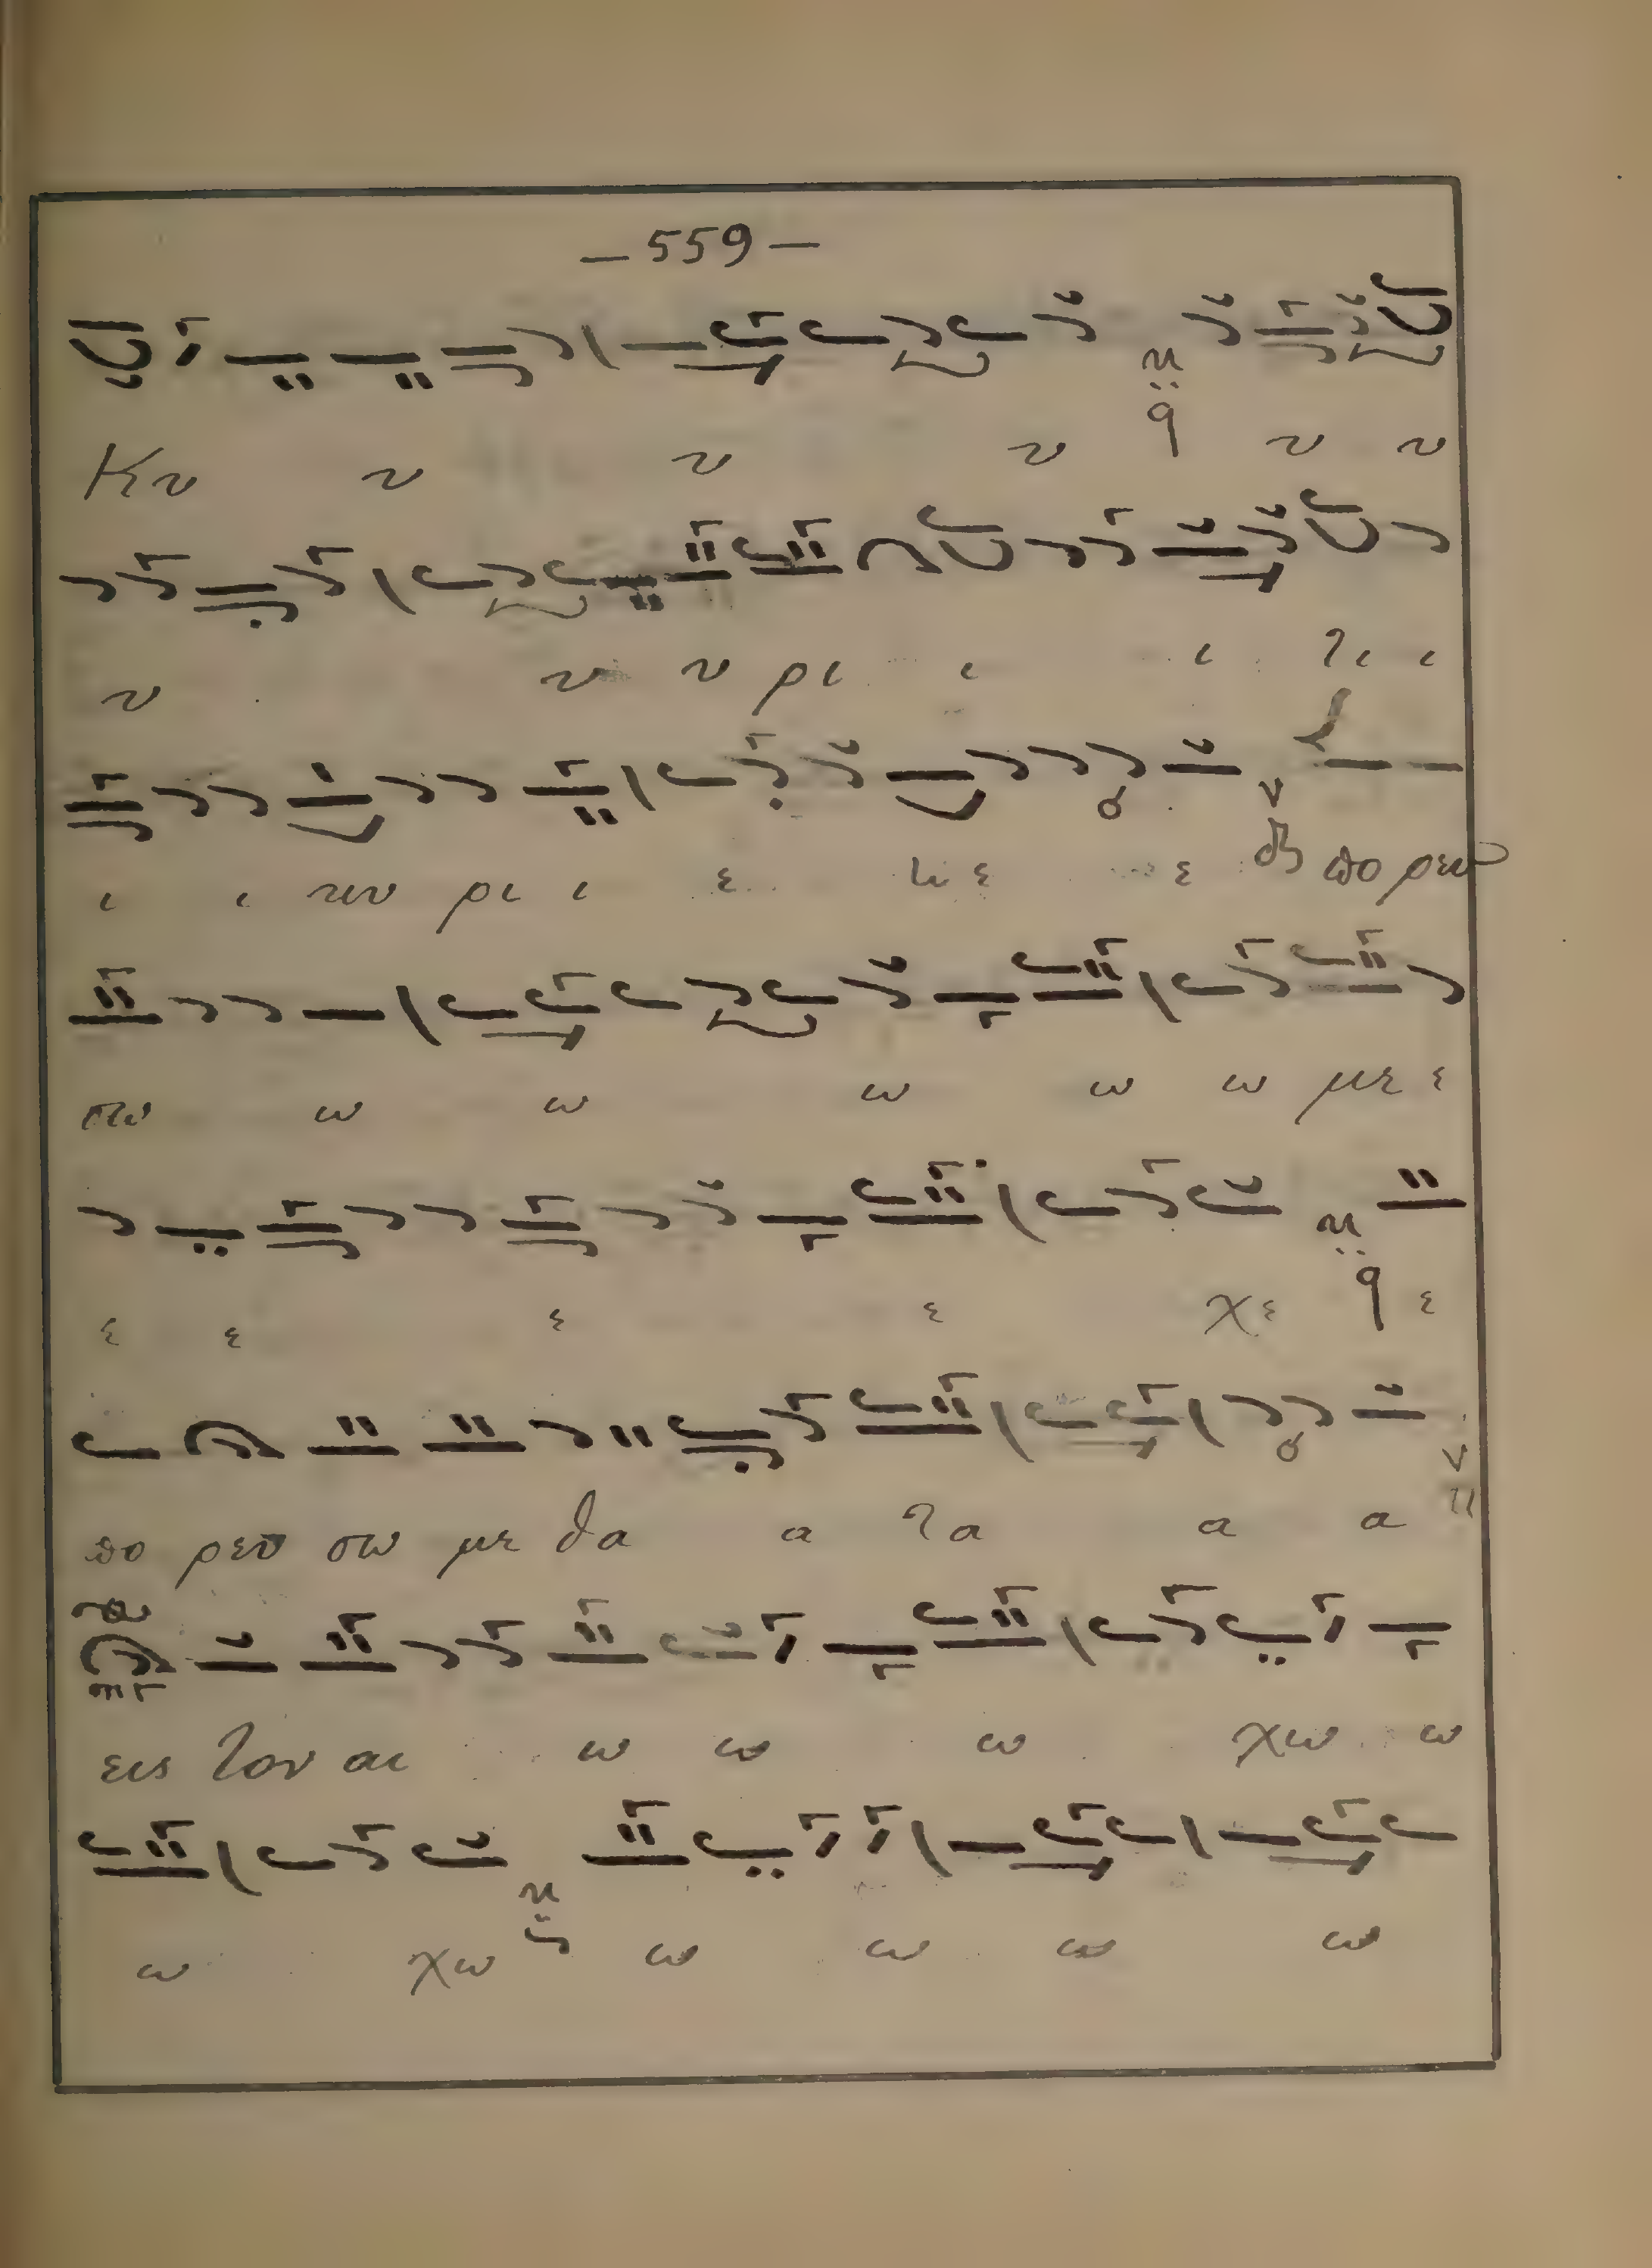 — 559 —
Κυ υ υ υ υ υ
υ υ υ ρι ι ι τι ι
ι ι των ρι ι ε ε ε πο ρευ
σω ω ω ω ω ω με ε
ε ε ε ε χε ε
πο ρευ σω με θα α τα α α
εις τον αι ω ω ω χω ω
ω χω ω ω ω ω